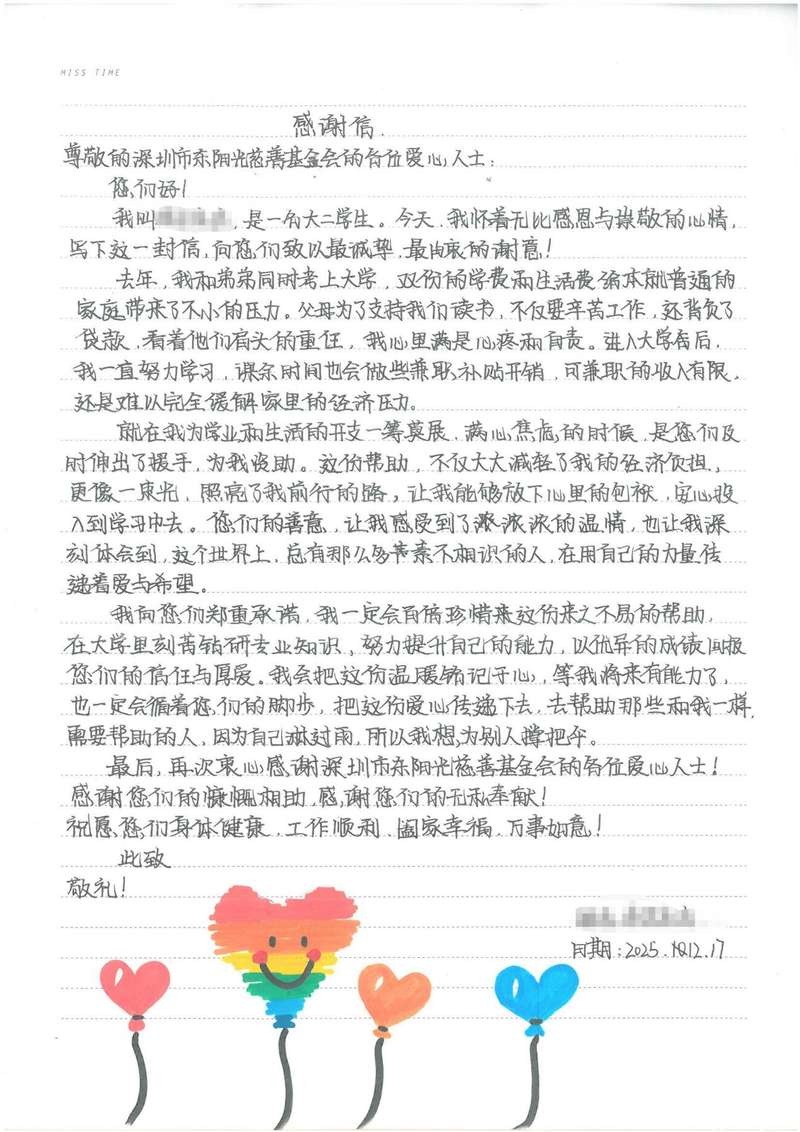 MISS TIME
感谢信.
尊敬的深圳市东阳光慈善基金会的各位爱心人士:
您们好!
我叫, 是一名大二学生。今天, 我怀着无比感恩与崇敬的心情,
写下这一封信, 向您们致以最诚挚、最由衷的谢意!
去年, 我和弟弟同时考上大学, 双份的学费和生活费给本就普通的
家庭带来了不小的压力。父母为了支持我们读书, 不仅要辛苦工作, 还背负了
贷款, 看着他们肩头的重任, 我心里满是心疼和自责。进入大学后,
我一直努力学习, 课余时间也会做些兼职补贴开销, 可兼职的收入有限,
还是难以完全缓解家里的经济压力。
就在我为学业和生活的开支一筹莫展、满心焦虑的时候, 是您们及
时伸出了援手, 为我资助。这份帮助, 不仅大大减轻了我的经济负担,
更像一束光, 照亮了我前行的路, 让我能够放下心里的包袱, 安心投
入到学习中去。您们的善意, 让我感受到了浓浓的温情, 也让我深
刻体会到, 这个世界上, 总有那么多素不相识的人, 在用自己的力量传
递着爱与希望。
我向您们郑重承诺, 我一定会百倍珍惜来这份来之不易的帮助,
在大学里刻苦钻研专业知识、努力提升自己的能力, 以优异的成绩回报
您们的信任与厚爱。我会把这份温暖铭记于心, 等我将来有能力了,
也一定会循着您们的脚步, 把这份爱心传递下去, 去帮助那些和我一样
需要帮助的人, 因为自己淋过雨, 所以我想为别人撑把伞。
最后, 再次衷心感谢深圳市东阳光慈善基金会的各位爱心人士!
感谢您们的慷慨相助, 感谢您们的无私奉献!
祝愿您们身体健康、工作顺利、阖家幸福、万事如意!
此致
敬礼!
日期: 2025.12.17